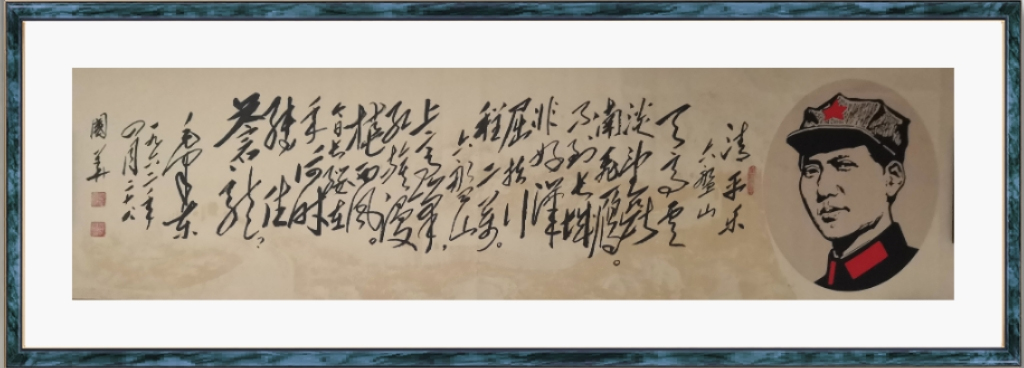 清平乐
六盘山
天高云
淡望断
南飛雁。
不到长城
非好漢
屈指行
程二万。
六盘山
上高峰,
红旗漫
捲西风。
今日长缨在
手何时
缚住
苍龙?
毛泽东
一九六一年
四月二十八
國華